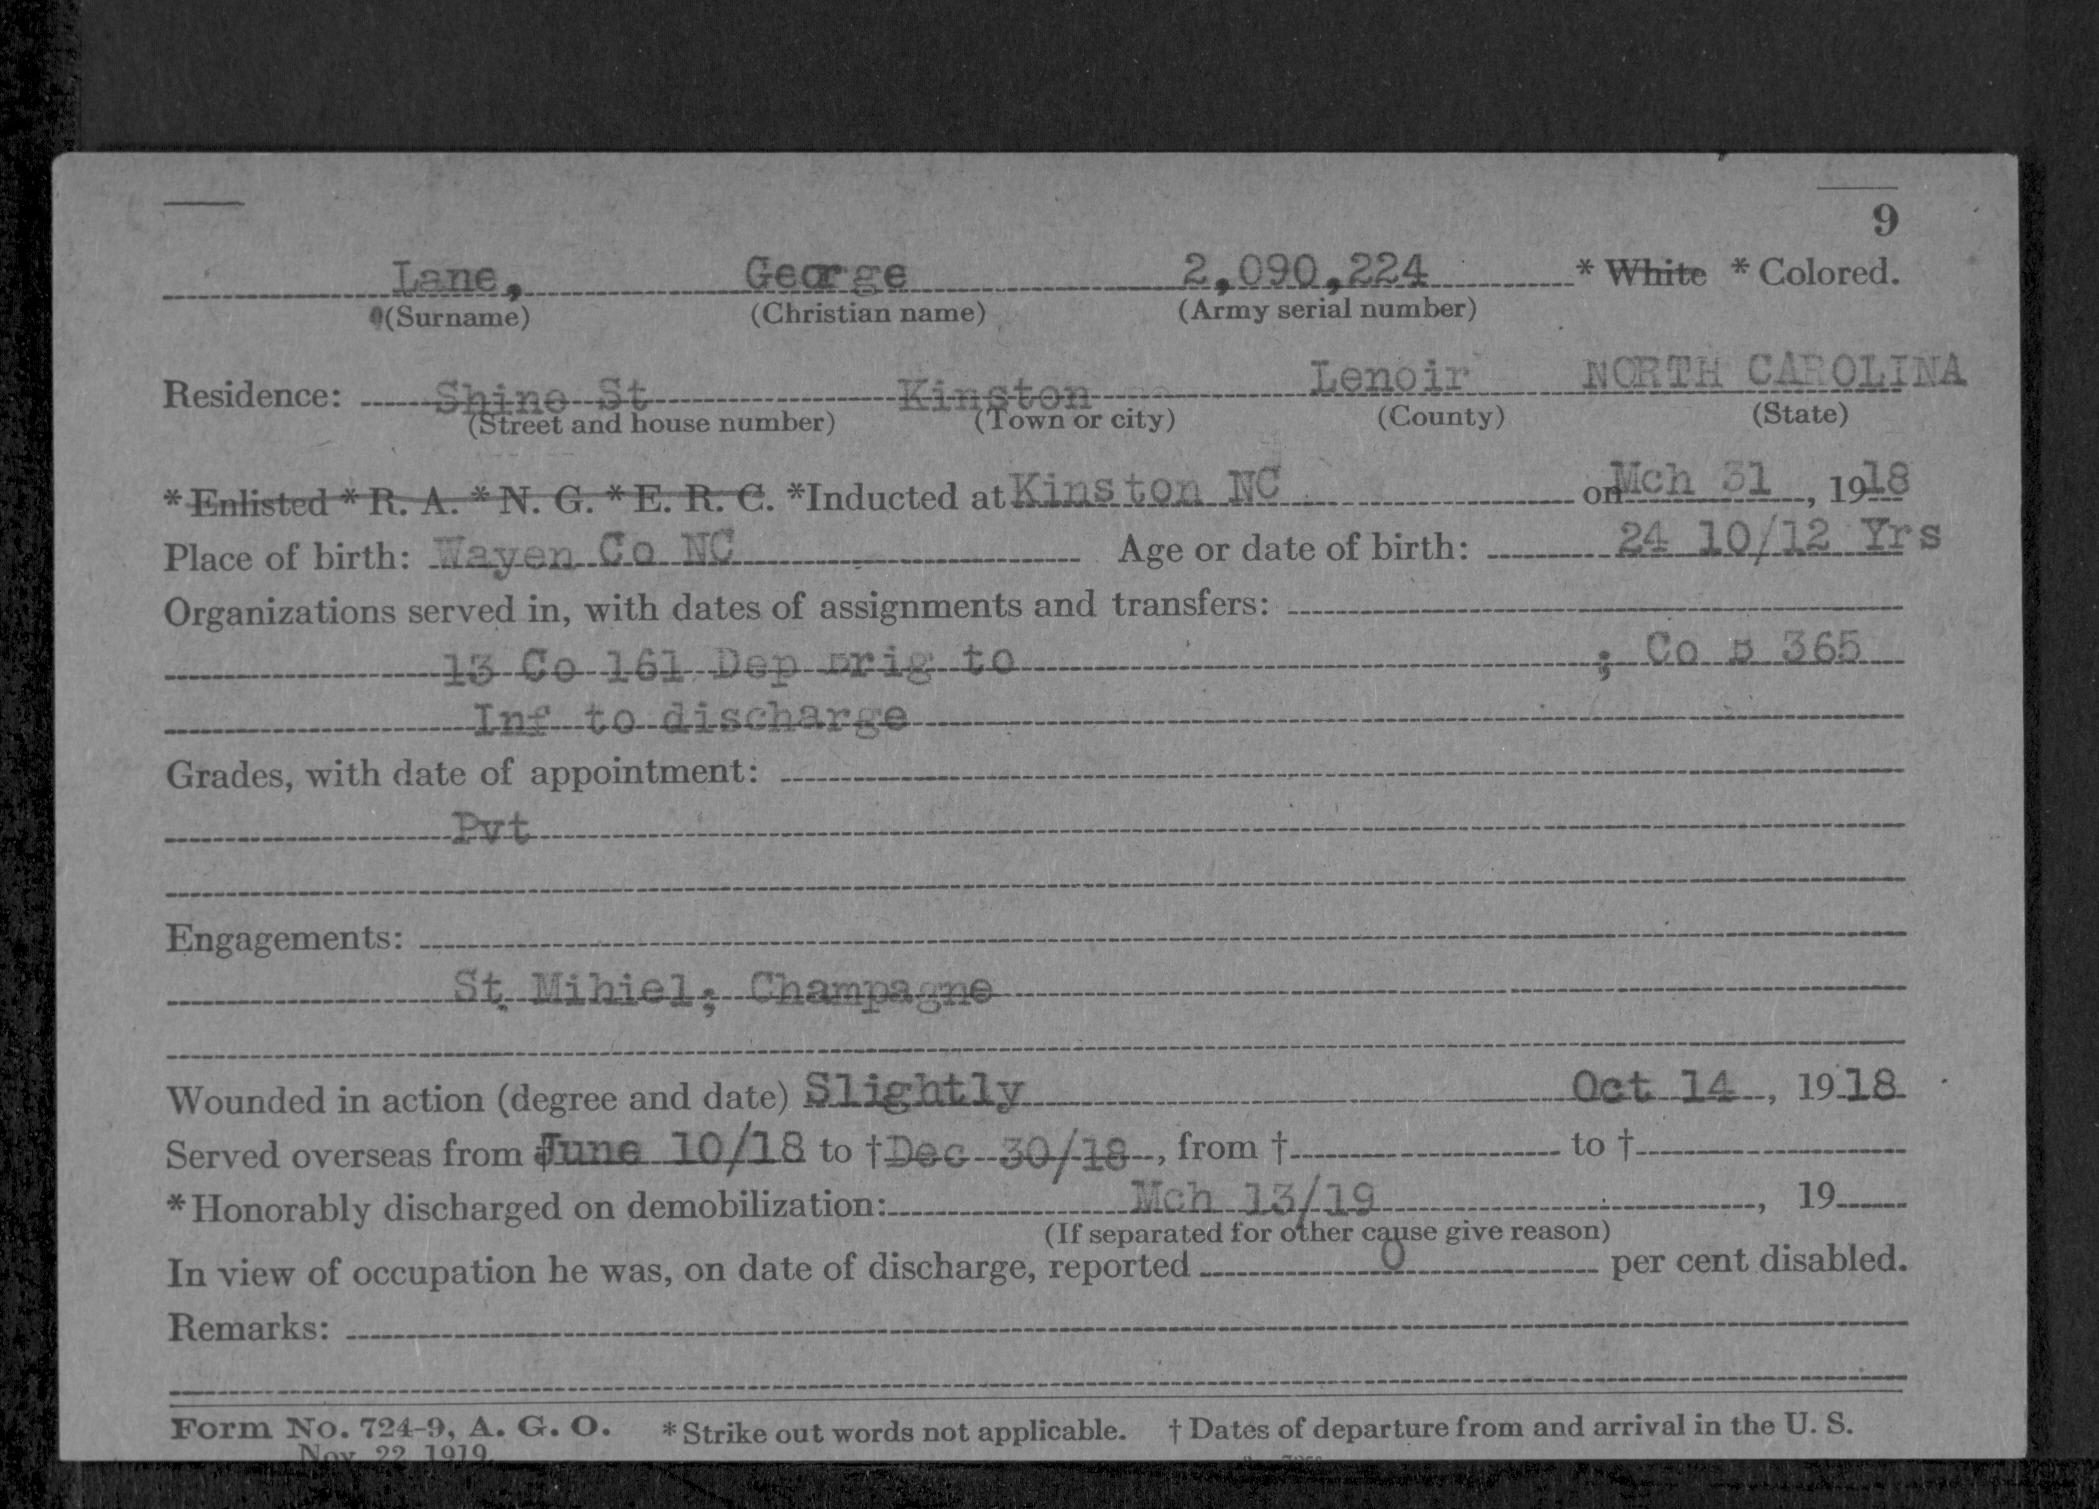 9
Lane, George 2,090,224 * White * Colored.
(Surname) (Christian name) (Army serial number)
Residence: Shine St Kinston Lenoir NORTH CAROLINA
(Street and house number) (Town or city) (County) (State)
* Enlisted * R. A. * N. G. * E. R. C. *Inducted at Kinston NC on Mch 31, 1918
Place of birth: Wayen Co NC Age or date of birth: 24 10/12 Yrs
Organizations served in, with dates of assignments and transfers:
13 Co 161 Dep Brig to ; Co B 365
Inf to discharge
Grades, with date of appointment:
Pvt
Engagements:
St. Mihiel; Champagne
Wounded in action (degree and date) Slightly Oct 14, 1918
Served overseas from June 10/18 to † Dec 30/18, from † to †
* Honorably discharged on demobilization: Mch 13/19, 19
(If separated for other cause give reason)
In view of occupation he was, on date of discharge, reported 0 per cent disabled.
Remarks:
Form No. 724-9, A. G. O. * Strike out words not applicable. † Dates of departure from and arrival in the U. S.
Nov. 22, 1919.